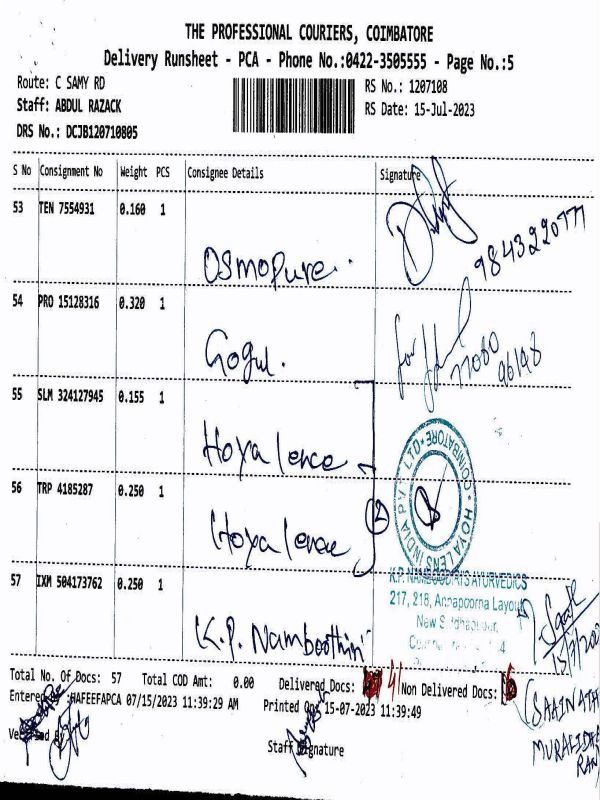 THE PROFESSIONAL COURIERS, COIMBATORE
Delivery Runsheet - PCA - Phone No.:0422-3505555 - Page No.:5
Route: C SAMY RD
RS No.: 1207108
Staff: ABDUL RAZACK
RS Date: 15-Jul-2023
DRS No.: DCJB120710805
S No Consignment No Weight PCS Consignee Details Signature
53 TEN 7554931 0.160 1
Osmopure..
9843220777
54 PRO 15128316 0.320 1
Gogul.
for
77080
96198
55 SLM 324127945 0.155 1
Hoya lence
56 TRP 4185287 0.250 1
Hoya lence
2
HOYA LENS INDIA PVT. LTD. COIMBATORE
57 IXM 504173762 0.250 1
K.P. Namboothiri
K.P. NAMBOODIRI'S AYURVEDICS
217, 218, Annapoorna Layout
New Sidhapudur,
15/7/202
(SAAINATH
MURALIDHA
RAN
Total No. Of Docs: 57 Total COD Amt: 0.00 Delivered Docs: 41 Non Delivered Docs:
Entered HAFEEFAPCA 07/15/2023 11:39:29 AM Printed On 15-07-2023 11:39:49
Verified By
Staff Signature